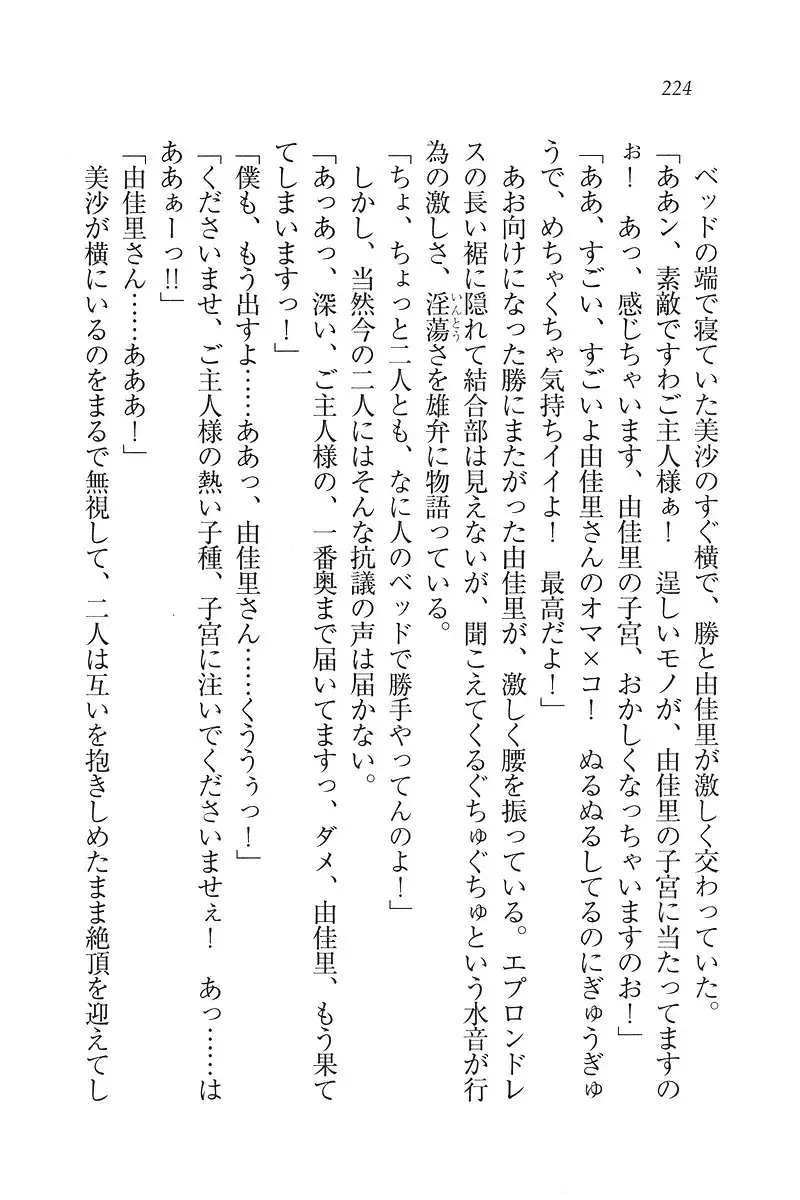 224
ベッドの端で寝ていた美沙のすぐ横で、勝と由佳里が激しく交わっていた。
「ああン、素敵ですわご主人様ぁ！　逞しいモノが、由佳里の子宮に当たってますの
ぉ！　あっ、感じちゃいます、由佳里の子宮、おかしくなっちゃいますのお！」
「ああ、すごい、すごいよ由佳里さんのオマ×コ！　ぬるぬるしてるのにぎゅうぎゅ
うで、めちゃくちゃ気持ちイイよ！　最高だよ！」
あお向けになった勝にまたがった由佳里が、激しく腰を振っている。エプロンドレ
スの長い裾に隠れて結合部は見えないが、聞こえてくるぐちゅぐちゅという水音が行
為の激しさ、淫蕩さを雄弁に物語っている。
「ちょ、ちょっと二人とも、なに人のベッドで勝手やってんのよ！」
しかし、当然今の二人にはそんな抗議の声は届かない。
「あっあっ、深い、ご主人様の、一番奥まで届いてますっ、ダメ、由佳里、もう果て
てしまいますっ！」
「僕も、もう出すよ……ああっ、由佳里さん……くううぅっ！」
「くださいませ、ご主人様の熱い子種、子宮に注いでくださいませぇ！　あっ……は
ああぁーっ!!」
「由佳里さん……あああ！」
美沙が横にいるのをまるで無視して、二人は互いを抱きしめたまま絶頂を迎えてし